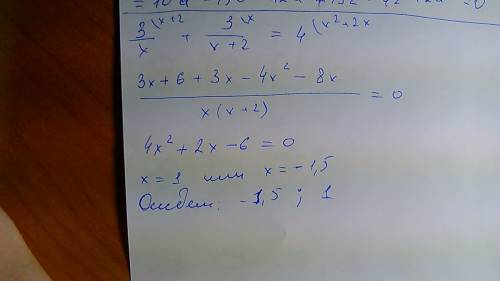 3/x \(x+2 + 3/(x+2) \(x = 4 \(x²+2x
(3x + 6 + 3x - 4x² - 8x)/(x(x+2)) = 0
4x² + 2x - 6 = 0
x = 1 или x = -1,5
Ответ: -1,5 ; 1